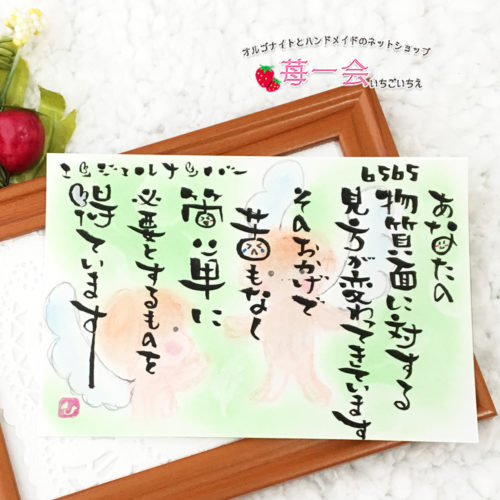 オルゴナイトとハンドメイドのネットショップ
苺一会
いちごいちえ
エンジェルナンバー
6565
あなたの
物質面に対する
見方が変わってきています
そのおかげで
苦もなく
簡単に
必要とするものを
得ています